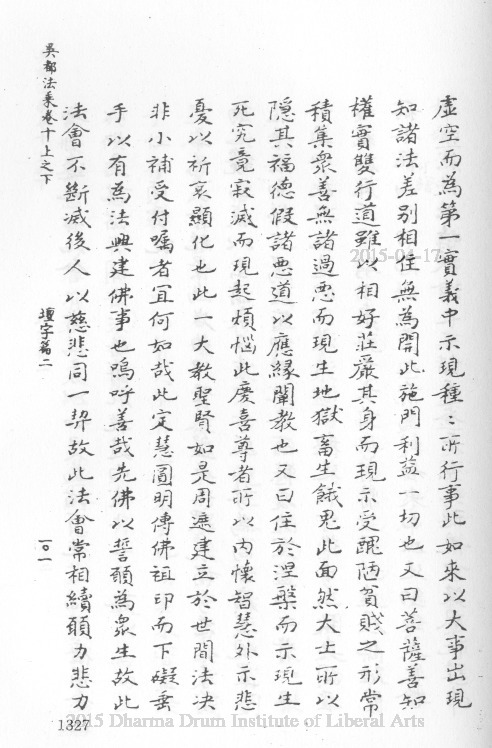 虛空而為第一實義中示現種﹕所行事此如來以大事出現
知諸法差別相住無為開此施門利益一切也又曰菩薩善知
權實雙行道雖以相好莊嚴其身而現示受醜陋貧賤之形常
積集衆善無諸過惡而現生地獄畜生餓鬼此面然大士所以
隱其福德假諸惡道以應緣闡教也又曰住於涅槃而示現生
死究竟寂滅而現起煩惱此慶喜尊者所以內懷智慧外示悲
憂以祈哀顯化也此一大教聖賢如是周遮建立於世間法决
非小補受付囑者宜何如哉此定慧圓明傳佛祖印而下礙垂
手以有為法興建佛事也嗚呼善哉先佛以誓願為衆生故此
法會不斷滅後人以慈悲同一契故此法會常相續願力悲力
吳都法乘卷十上之下
壇宇篇二
一〇一
1327
2015-04-17
2015 Dharma Drum Institute of Liberal Arts